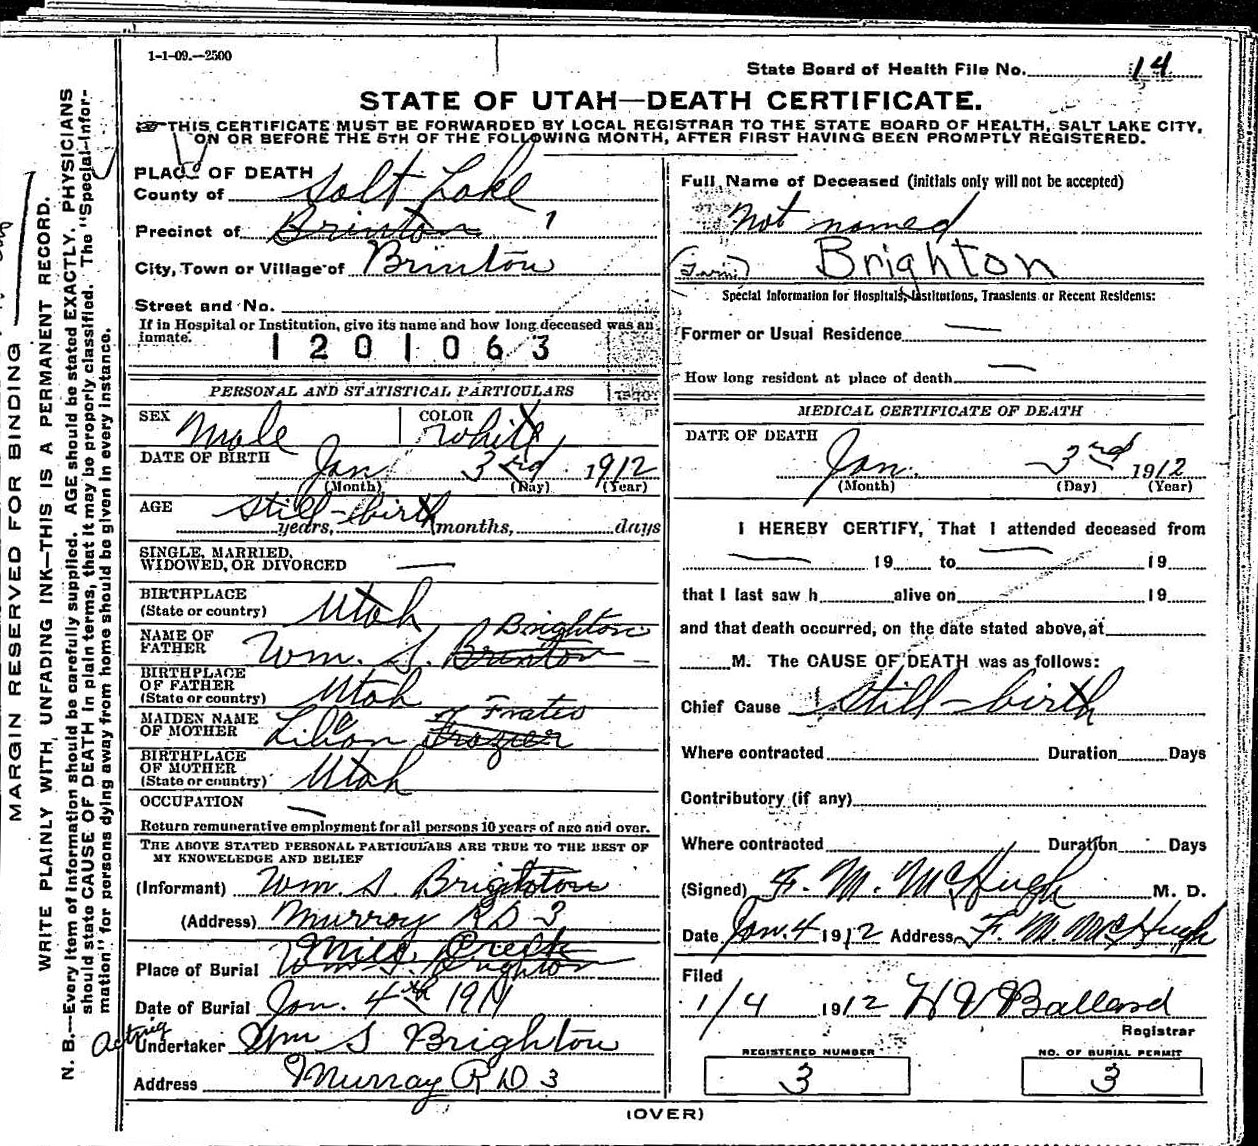 1-1-09.—2500
State Board of Health File No. 14
STATE OF UTAH—DEATH CERTIFICATE.
THIS CERTIFICATE MUST BE FORWARDED BY LOCAL REGISTRAR TO THE STATE BOARD OF HEALTH, SALT LAKE CITY,
ON OR BEFORE THE 5TH OF THE FOLLOWING MONTH, AFTER FIRST HAVING BEEN PROMPTLY REGISTERED.
MARGIN RESERVED FOR BINDING
WRITE PLAINLY WITH UNFADING INK—THIS IS A PERMANENT RECORD.
N. B.—Every item of information should be carefully supplied. AGE should be stated EXACTLY. PHYSICIANS
should state CAUSE OF DEATH in plain terms, that it may be properly classified. The "Special Infor-
mation" for persons dying away from home should be given in every instance.
PLACE OF DEATH
County of Salt Lake
Precinct of Brinton 1
City, Town or Village of Brinton
Street and No.
If in Hospital or Institution, give its name and how long deceased was an
inmate.
1201063
PERSONAL AND STATISTICAL PARTICULARS
SEX Male COLOR White
DATE OF BIRTH Jan 3rd 1912
(Month) (Day) (Year)
AGE Still-birth
years, months, days
SINGLE, MARRIED,
WIDOWED, OR DIVORCED —
BIRTHPLACE
(State or country) Utah
Brighton
NAME OF
FATHER Wm. S. Brinton
BIRTHPLACE
OF FATHER
(State or country) Utah
MAIDEN NAME
OF MOTHER Lilian Frazier
BIRTHPLACE
OF MOTHER
(State or country) Utah
OCCUPATION —
Return remunerative employment for all persons 10 years of age and over.
THE ABOVE STATED PERSONAL PARTICULARS ARE TRUE TO THE BEST OF
MY KNOWLEDGE AND BELIEF
(Informant) Wm. S. Brighton
(Address) Murray RD 3
Mill Creek
Place of Burial Wm S. Brighton
Date of Burial Jan. 4th 1911
Acting
Undertaker Wm S Brighton
Address Murray R D 3
Full Name of Deceased (initials only will not be accepted)
Not named
(Twin) Brighton
Special Information for Hospitals, Institutions, Transients or Recent Residents:
Former or Usual Residence —
How long resident at place of death —
MEDICAL CERTIFICATE OF DEATH
DATE OF DEATH Jan. 3rd 1912
(Month) (Day) (Year)
I HEREBY CERTIFY, That I attended deceased from
— 19 to — 19
that I last saw h alive on 19
and that death occurred, on the date stated above, at
M. The CAUSE OF DEATH was as follows:
Chief Cause Still-birth
Where contracted Duration Days
Contributory (if any)
Where contracted Duration Days
(Signed) F. M. McHugh M. D.
Date Jan. 4 1912 Address F. M. McHugh
Filed
1/4 1912 H V Ballard
Registrar
REGISTERED NUMBER
3
NO. OF BURIAL PERMIT
3
(OVER)